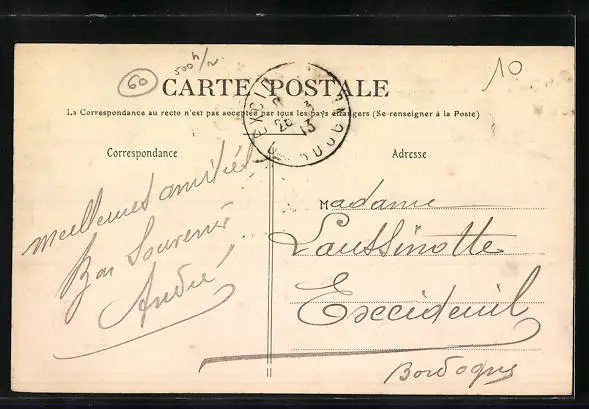 60
500 h/2
10
CARTE POSTALE
La Correspondance au recto n'est pas acceptée par tous les pays étrangers (Se renseigner à la Poste)
Correspondance
Adresse
meilleures amitiés
Bon Souvenir
André
Madame
Laussinotte
Excideuil
Dordogne